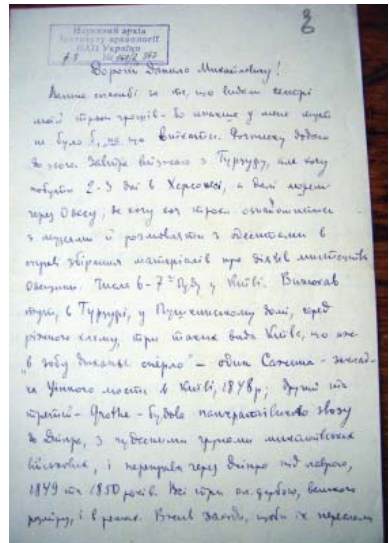 Науковий архів
Інституту археології
НАН України
Дорогий Данило Михайлович!
Велике спасибі за те, що видали сестрі
моїй трохи грошей - бо інакше у мене тут
не було б, на що виїхати. Розписку додаю
до цього. Завтра виїзжаю з Гурзуфу, але хочу
побути 2-3 дні в Херсонесі, а далі морем
через Одесу, де хочу хоч трохи ознайомитися
з музеями й розмовляти з одеситами в
справі збірання матеріалів про діячів мистецтва
Одещини. Числа 6-7 го буду у Київі.
тут, в Гурзуфі, у Пушкинському домі, серед
ріжного хламу, три таких вида Київа, що аж
"в зобу дыханье спёрло" - один Сажина - заклад-
ка Цінного моста в Київі, 1848 р; другий та
третій - Grothe - будова панкратіївського звозу
до Дніпра, з чудесними групами миколаївських
військових, і переправа через Дніпро під лаврою,
1849 та 1850 років. Всі три ол. фарбою, великого
розміру, і в рамах. Вжив заходів, щоби їх переслали